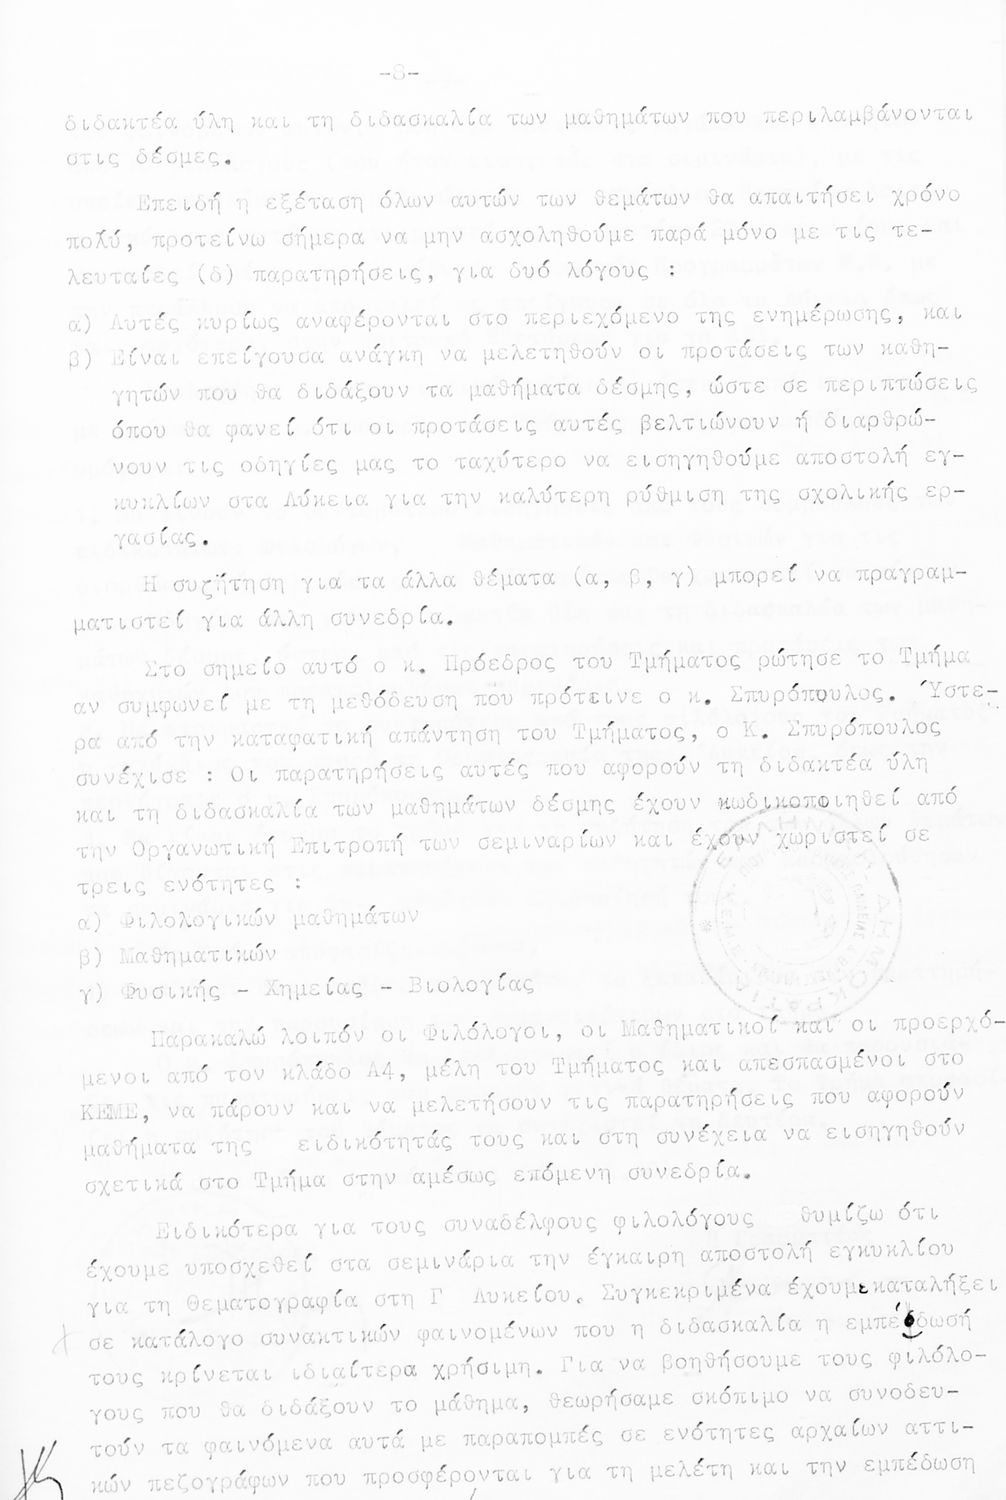 -8-
διδακτέα ύλη και τη διδασκαλία των μαθημάτων που περιλαμβάνονται
στις δέσμες.
Επειδή η εξέταση όλων αυτών των θεμάτων θα απαιτήσει χρόνο
πολύ, προτείνω σήμερα να μην ασχοληθούμε παρά μόνο με τις τε-
λευταίες (δ) παρατηρήσεις, για δυό λόγους :
α) Αυτές κυρίως αναφέρονται στο περιεχόμενο της ενημέρωσης, και
β) Είναι επείγουσα ανάγκη να μελετηθούν οι προτάσεις των καθη-
γητών που θα διδάξουν τα μαθήματα δέσμης, ώστε σε περιπτώσεις
όπου θα φανεί ότι οι προτάσεις αυτές βελτιώνουν ή διαρθρώ-
νουν τις οδηγίες μας το ταχύτερο να εισηγηθούμε αποστολή εγ-
κυκλίων στα Λύκεια για την καλύτερη ρύθμιση της σχολικής ερ-
γασίας.
Η συζήτηση για τα άλλα θέματα (α, β, γ) μπορεί να πραγραμ-
ματιστεί για άλλη συνεδρία.
Στο σημείο αυτό ο κ. Πρόεδρος του Τμήματος ρώτησε το Τμήμα
αν συμφωνεί με τη μεθόδευση που πρότεινε ο κ. Σπυρόπουλος. Ύστε-
ρα από την καταφατική απάντηση του Τμήματος, ο Κ. Σπυρόπουλος
συνέχισε : Οι παρατηρήσεις αυτές που αφορούν τη διδακτέα ύλη
και τη διδασκαλία των μαθημάτων δέσμης έχουν κωδικοποιηθεί από
την Οργανωτική Επιτροπή των σεμιναρίων και έχουν χωριστεί σε
τρεις ενότητες :
α) Φιλολογικών μαθημάτων
β) Μαθηματικών
γ) Φυσικής - Χημείας - Βιολογίας
Παρακαλώ λοιπόν οι Φιλόλογοι, οι Μαθηματικοί και οι προερχό-
μενοι από τον κλάδο Α4, μέλη του Τμήματος και απεσπασμένοι στο
ΚΕΜΕ, να πάρουν και να μελετήσουν τις παρατηρήσεις που αφορούν
μαθήματα της ειδικότητάς τους και στη συνέχεια να εισηγηθούν
σχετικά στο Τμήμα στην αμέσως επόμενη συνεδρία.
Ειδικότερα για τους συναδέλφους φιλολόγους θυμίζω ότι
έχουμε υποσχεθεί στα σεμινάρια την έγκαιρη αποστολή εγκυκλίου
για τη Θεματογραφία στη Γ Λυκείου. Συγκεκριμένα έχουμε καταλήξει
σε κατάλογο συνακτικών φαινομένων που η διδασκαλία η εμπέδωσή
τους κρίνεται ιδιαίτερα χρήσιμη. Για να βοηθήσουμε τους φιλόλο-
γους που θα διδάξουν το μάθημα, θεωρήσαμε σκόπιμο να συνοδευ-
τούν τα φαινόμενα αυτά με παραπομπές σε ενότητες αρχαίων αττι-
κών πεζογράφων που προσφέρονται για τη μελέτη και την εμπέδωση